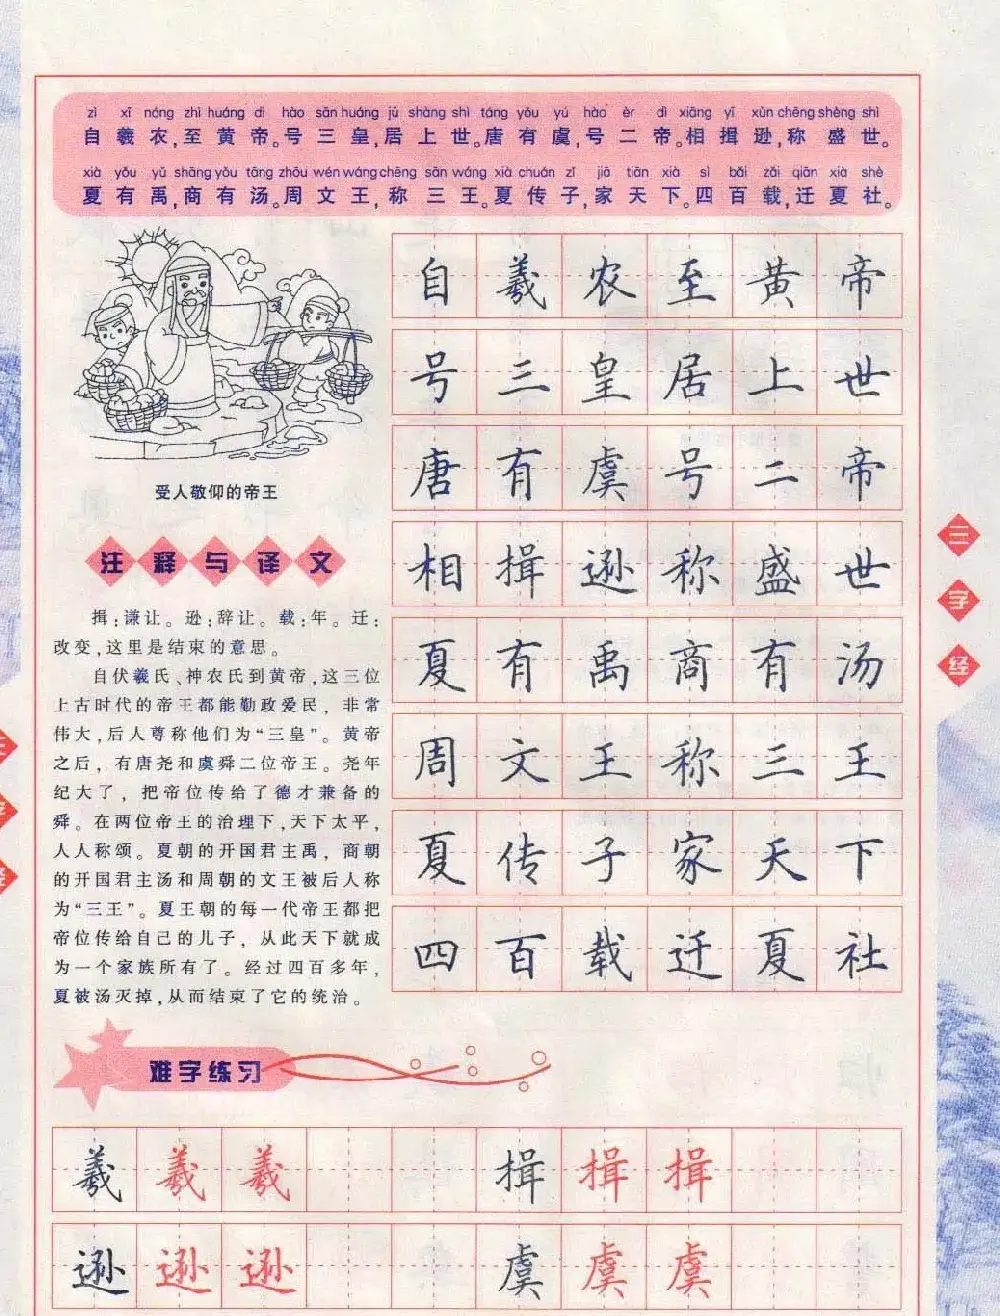 zì xī nóng zhì huáng dì hào sān huáng jū shàng shì táng yǒu yú hào èr dì xiāng yī xùn chēng shèng shì
自羲农,至黄帝。号三皇,居上世。唐有虞,号二帝。相揖逊,称盛世。
xià yǒu yǔ shāng yǒu tāng zhōu wén wáng chēng sān wáng xià chuán zǐ jiā tiān xià sì bǎi zǎi qiān xià shè
夏有禹,商有汤。周文王,称三王。夏传子,家天下。四百载,迁夏社。
自羲农至黄帝
号三皇居上世
唐有虞号二帝
相揖逊称盛世
夏有禹商有汤
周文王称三王
夏传子家天下
四百载迁夏社
受人敬仰的帝王
注释与译文
揖:谦让。逊:辞让。载:年。迁:
改变,这里是结束的意思。
自伏羲氏、神农氏到黄帝,这三位
上古时代的帝王都能勤政爱民,非常
伟大,后人尊称他们为“三皇”。黄帝
之后,有唐尧和虞舜二位帝王。尧年
纪大了,把帝位传给了德才兼备的
舜。在两位帝王的治理下,天下太平,
人人称颂。夏朝的开国君主禹,商朝
的开国君主汤和周朝的文王被后人称
为“三王”。夏王朝的每一代帝王都把
帝位传给自己的儿子,从此天下就成
为一个家族所有了。经过四百多年,
夏被汤灭掉,从而结束了它的统治。
三字经
难字练习
羲羲羲 揖揖揖
逊逊逊 虞虞虞